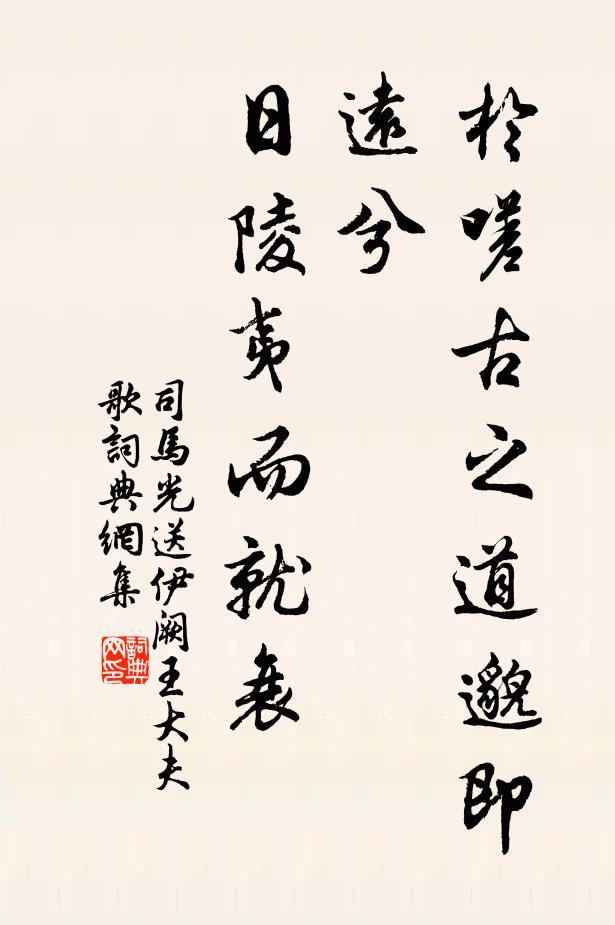 於嗟古之道邈即
遠兮
日陵夷而就衰
司馬光送伊阙王大夫
歌詞典網集
詞典
网印